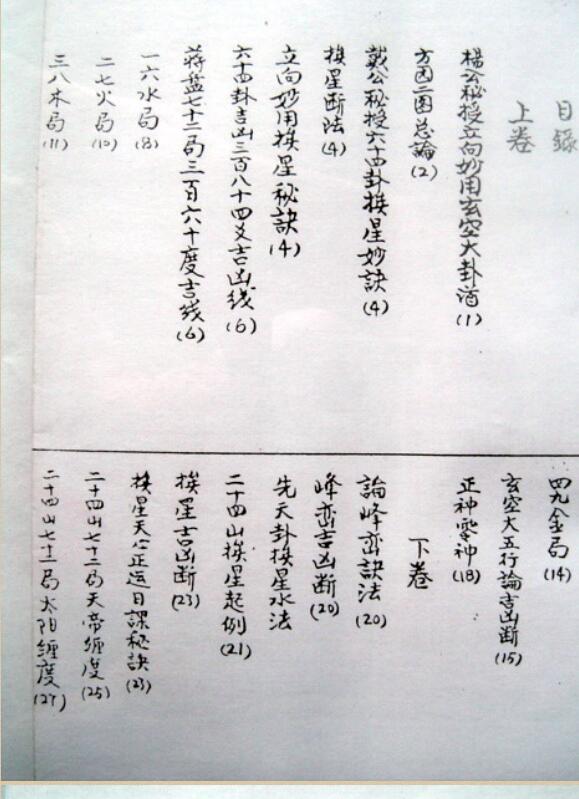 目錄
上卷
楊公秘授立向妙用玄空大卦酒(1)
方圆二图总論(2)
戴公秘授六十四卦挨星妙訣(4)
挨星断法(4)
立向妙用挨星秘訣(4)
六十四卦吉凶三百八十四爻吉凶线(6)
蒋盘七十二局三百六十度吉线(6)
一六水局(8)
二七火局(10)
三八木局(11)
四九金局(14)
玄空大五行論吉凶断(15)
正神零神(18)
下卷
論峰巒訣法(20)
峰巒吉凶断(20)
先天卦挨星水法
二十四山挨星起例(21)
挨星吉凶断(23)
挨星天心正运日課秘訣(23)
二十四山七十二局天帝缠度(25)
二十四山七十二局太阳缠度(27)